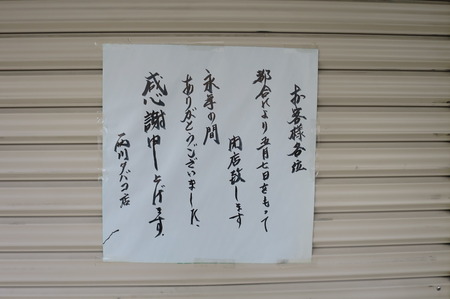 お客様各位
都合により五月七日をもって
閉店致します
永年の間
ありがとうございました、
感謝申し上げます。
西川タバコ店